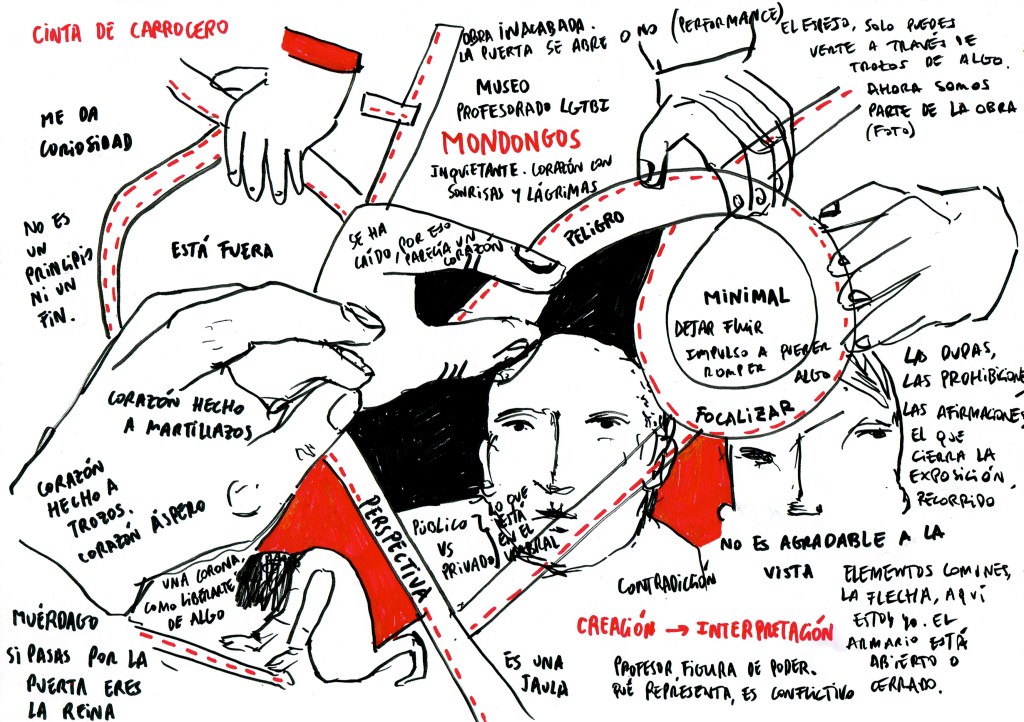 CINTA DE CARROCERO
OBRA INACABADA.
LA PUERTA SE ABRE O NO (PERFORMANCE)
EL ESPEJO, SOLO PUEDES
VERTE A TRAVÉS DE
TROZOS DE ALGO.
AHORA SOMOS
PARTE DE LA OBRA
(FOTO)
ME DA
CURIOSIDAD
MUSEO
PROFESORADO LGTBI
MONDONGOS
INQUIETANTE. CORAZÓN CON
SONRISAS Y LÁGRIMAS
NO ES
UN
PRINCIPIO
NI UN
FIN.
ESTÁ FUERA
SE HA
CAÍDO, POR ESO
PARECÍA UN
CORAZÓN
PELIGRO
MINIMAL
DEJAR FLUIR
IMPULSO A PODER
ROMPER
ALGO
FOCALIZAR
LAS DUDAS,
LAS PROHIBICIONES
LAS AFIRMACIONES
EL QUE
CIERRA LA
EXPOSICIÓN,
RECORRIDO
CORAZÓN HECHO
A MARTILLAZOS
CORAZÓN
HECHO A
TROZOS.
CORAZÓN ÁSPERO
PERSPECTIVA
PÚBLICO
VS
PRIVADO
LO QUE
ESTÁ
EN EL
UMBRAL
CONTRADICIÓN
NO ES AGRADABLE A LA
VISTA
UNA CORONA,
COMO LIBERARTE
DE ALGO
MUÉRDAGO
SI PASAS POR LA
PUERTA ERES
LA REINA
ES UNA
JAULA
CREACIÓN → INTERPRETACIÓN
PROFESOR FIGURA DE PODER.
QUÉ REPRESENTA, ES CONFLICTIVO
ELEMENTOS COMUNES,
LA FLECHA, AQUÍ
ESTOY YO. EL
ARMARIO ESTÁ
ABIERTO O
CERRADO.